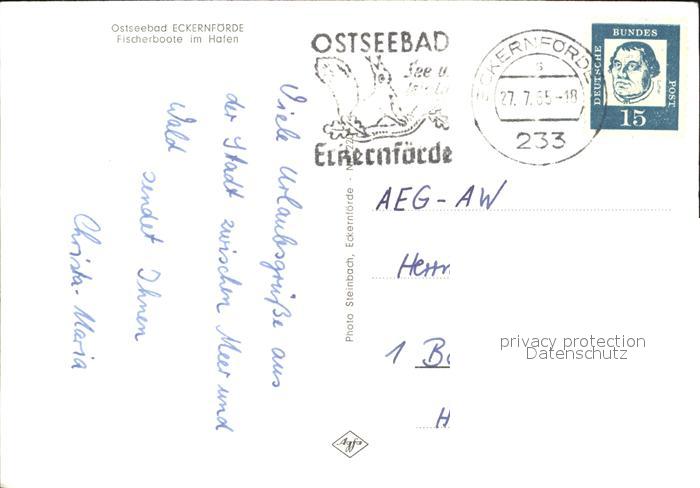 Ostseebad ECKERNFÖRDE
Fischerboote im Hafen
Viele Urlaubsgrüße aus
der Stadt zwischen Meer und
Wald
sendet Ihnen
Christa-Maria
Photo Steinbach, Eckernförde -
OSTSEEBAD
See u.
Eckernförde
ECKERNFÖRDE
s
27.7.65-18
233
DEUTSCHE
BUNDES
POST
15
AEG-AW
Herrn
1 B
H
privacy protection
Datenschutz
Agfa